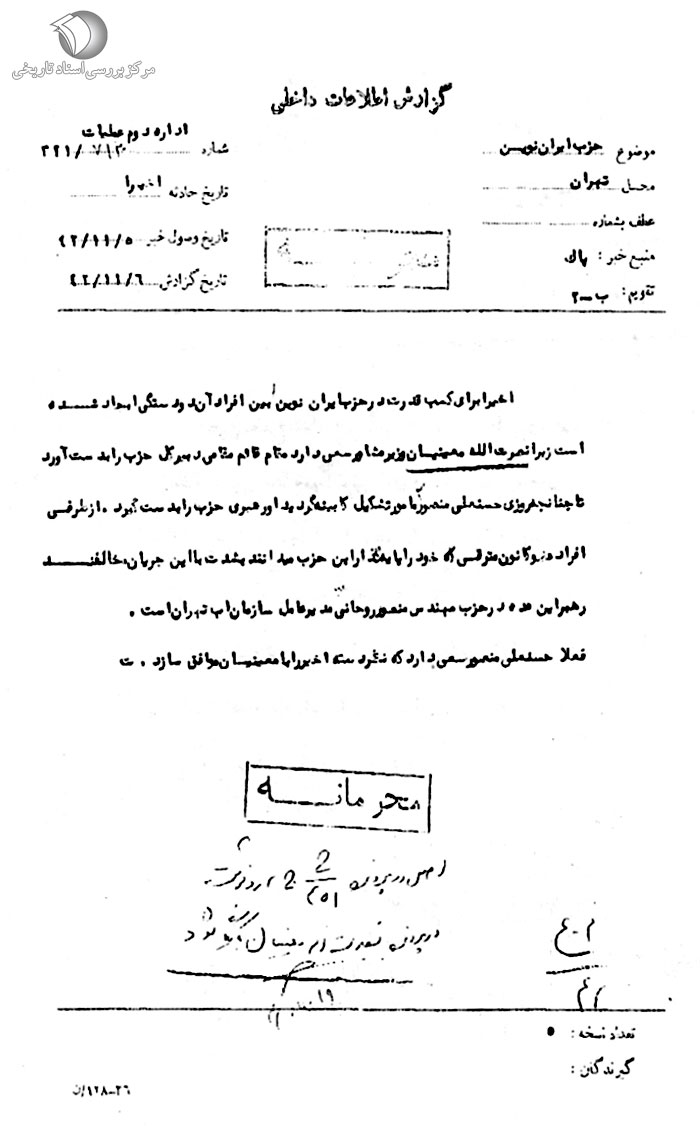 مرکز بررسی اسناد تاریخی
گزارش اطلاعات داخلی
موضوع حزب ایران نوین
محل تهران
عطف بشماره
منبع خبر : پاک
تقویم : ب-۲
اداره دوم عملیات
شماره ۳۲۱/۷/۳۰
تاریخ حادثه اخیرا
تاریخ وصول خبر ۴۲/۱۱/۵
تاریخ گزارش ۴۲/۱۱/۶
اخیرا برای کسب قدرت در حزب ایران نوین بین افراد آن دودستگی ایجاد شده
است زیرا نصرت الله معینیان وزیر مشاور سعی دارد مقام قائم مقامی دبیرکل حزب را بدست آورد
تا چنانچه روزی حسنعلی منصور مامور تشکیل کابینه گردید او رهبری حزب را بدست گیرد . از طرفی
افراد عضو کانون مترقی که خود را پایه گذار این حزب میدانند بشدت با این جریان مخالفند
رهبر این عده در حزب مهندس منصور روحانی مدیرعامل سازمان اب تهران است .
فعلا حسنعلی منصور سعی دارد که نظر دسته اخیر را با معینیان موافق سازد . ت
محرمانه
اصل در پرونده
در پرونده نصرت اله معینیان شود
تعداد نسخه : ۵
گیرندگان :
۲۶-۱۲۸/ن